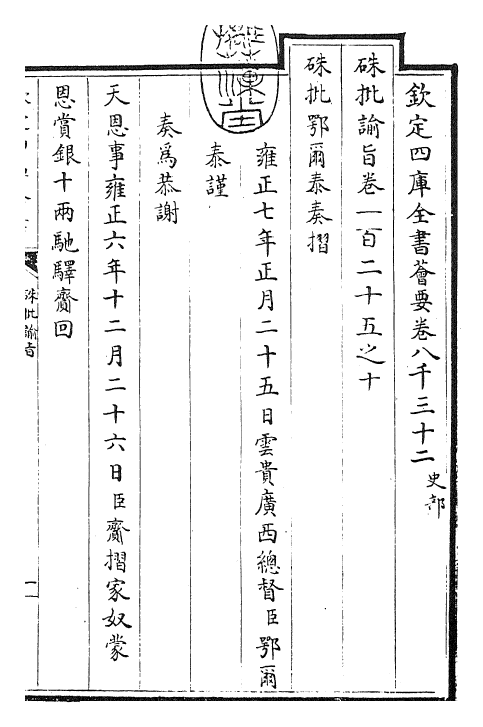 欽定四庫全書薈要卷八千三十二 史部
硃批諭旨卷一百二十五之十
硃批鄂爾泰奏摺
雍正七年正月二十五日雲貴廣西總督臣鄂爾
泰謹
奏爲恭謝
天恩事雍正六年十二月二十六日臣齎摺家奴蒙
恩賞銀十兩馳驛齎回
硃批諭旨
一